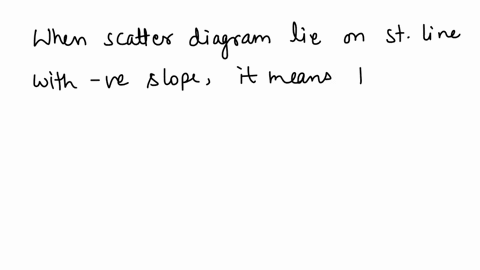 When scatter diagram lie on st. line
with -ve slope, it means